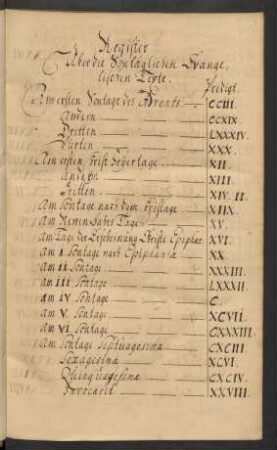 Register
Über die Sontäglichen Evange
lischen Texte.
Predigt.
Am ersten Sontage des Advents. CCIII.
Andern CCXIX.
Dritten LXXXIV.
Vierten XXX.
Am ersten Christ Feyertage. XII.
Andern XIII.
Dritten XIV. II
Am Sontage nach dem Christtage XIIX.
Am Neuen Jahrs Tage XV.
Am Tage der Erscheinung Christi Epiphan XVI.
am I Sontage nach Epiphania XX.
am II Sontage XXXIII.
am III Sontage LXXXII.
am IV Sontage C.
am V. Sontage XCVII
am VI Sontage CXXXIII.
Am Sontage Septuagesima CXCIII
Sexagesima XCVI.
Quinquagesima CXCIV.
Invocavit XXVIII.